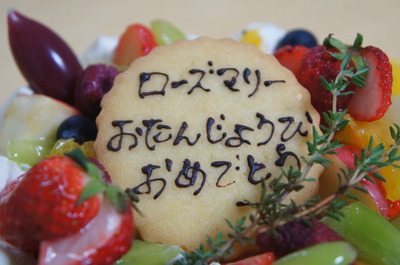 ローズマリー
おたんじょうび
おめでとう